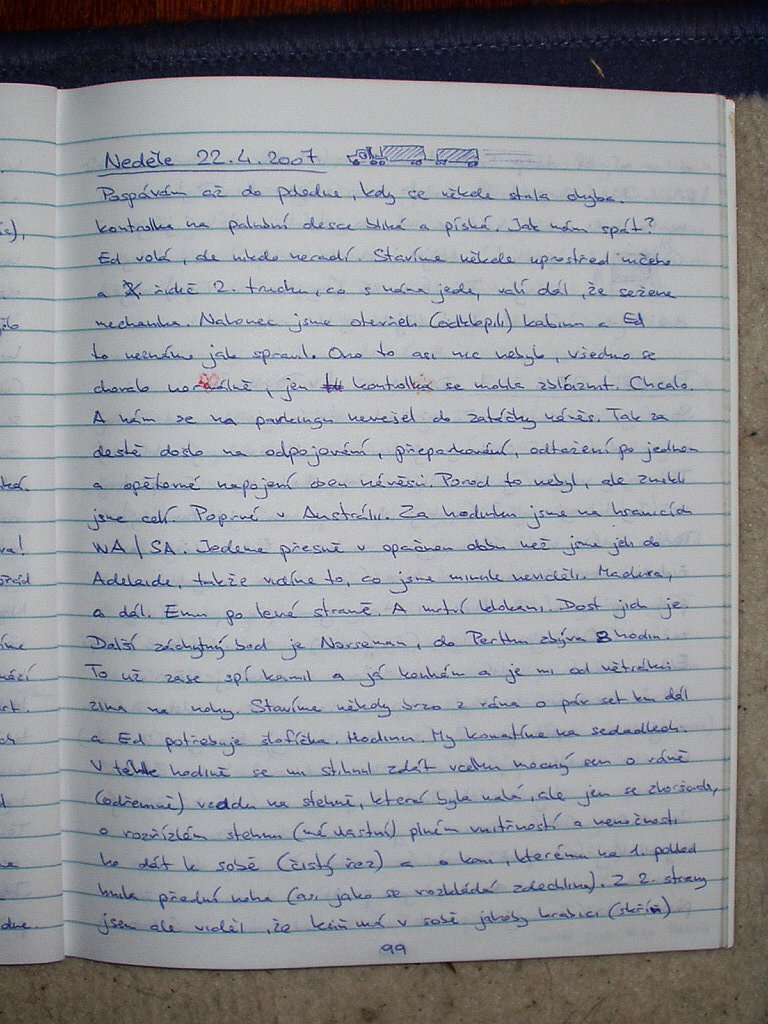 Neděle 22.4.2007
Pospávám až do poledne, kdy se někde stala chyba.
Kontrolka na palubní desce bliká a píská. Jak nám spát?
Ed volá, ale nikdo neradí. Stavíme někde uprostřed ničeho
a řidič 2. trucku, co s náma jede, valí dál, že sežene
mechanika. Nakonec jsme otevřeli (odklopili) kabinu a Ed
to neznámo jak spravil. Ono to asi nic nebylo, všechno se
chovalo normálně, jen kontrolka se mohla zbláznit. Chcalo.
A nám se na parkingu nevejel do zatáčky návěs. Tak za
deště došlo na odpojování, přeparkování, odtažení po jednom
a opětovné napojení obou návěsů. Porod to nebyl, ale zmokli
jsme celí. Poprvé v Austrálii. Za hodinku jsme na hranicích
WA/SA. Jedeme přesně v opačnou dobu než jsme jeli do
Adelaide, takže vidíme to, co jsme minule neviděli. Madura,
a dál. Emu po levé straně. A mrtví klokani. Dost jich je.
Další záchytný bod je Norseman, do Perthu zbývá 8 hodin.
To už zase spí kamil a já koukám a je mi od větráku
zima na nohy. Stavíme někdy brzo z rána o pár set km dál
a Ed potřebuje šlofíčka. Hodinu. My komatíme na sedadlech.
V téhle hodině se mi stihnul zdát vcelku mocný sen o ráně
(odřenině) vzadu na stehně, která byla malá, ale jen se zhoršovala,
o rozřízlém stehnu (mé vlastní) plném vnitřností a nemožnosti
ho dát k sobě (čistý řez) a o koni, kterému na 1. pohled
hnila přední noha (asi jako se rozkládá zdechlina). Z 2. strany
jsem ale viděl, že kůň má v sobě jakoby krabici (skříň)
99